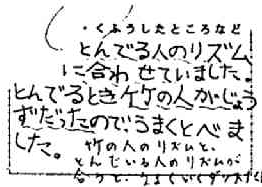 ・くふうしたところなど
とんでる人のリズム
に合わせていました。
とんでるとき竹の人がじょう
ずだったので、うまくとべま
した。
竹の人のリズムと、
とんでいる人のリズムが
合うと、うまくいく